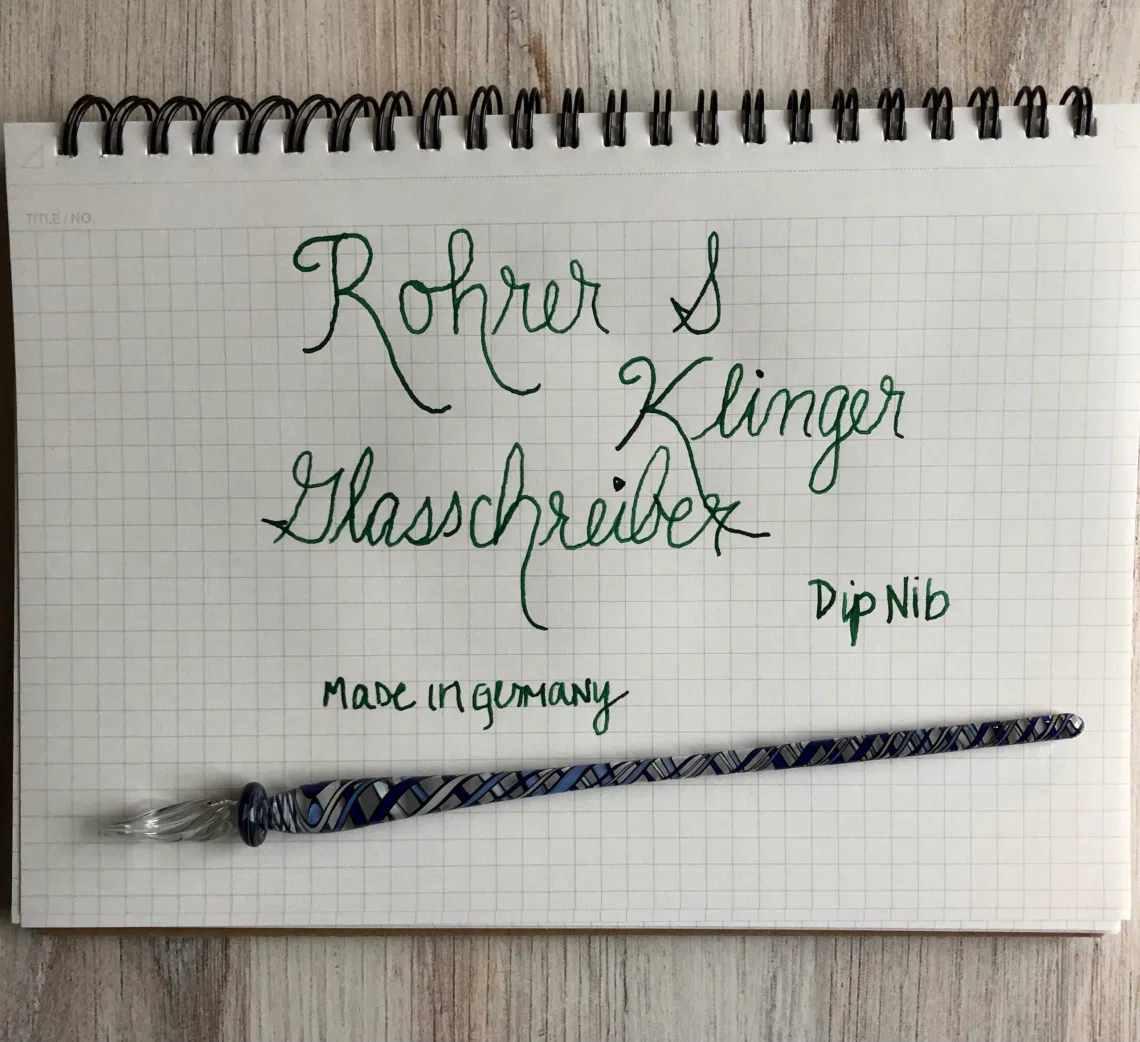 TITLE / NO.
Rohrer &
Klinger
Glasschreiber
Dip Nib
Made in germany